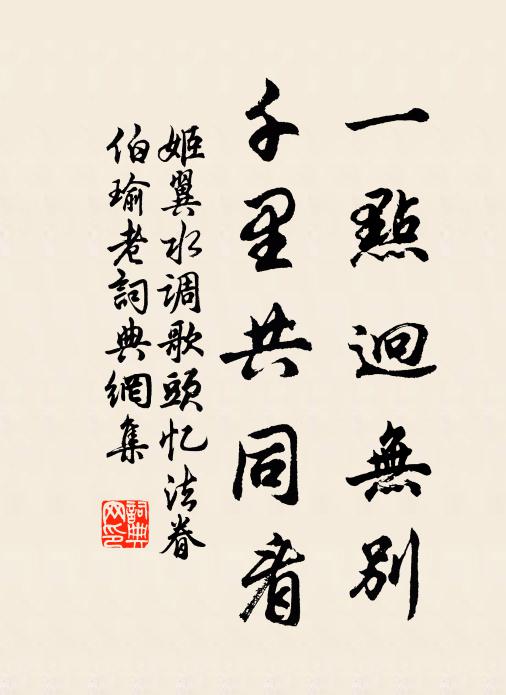 一點迥無別
千里共同看
姬翼水调歌頭忆法眷
伯瑜老詞典網集
詞典网印